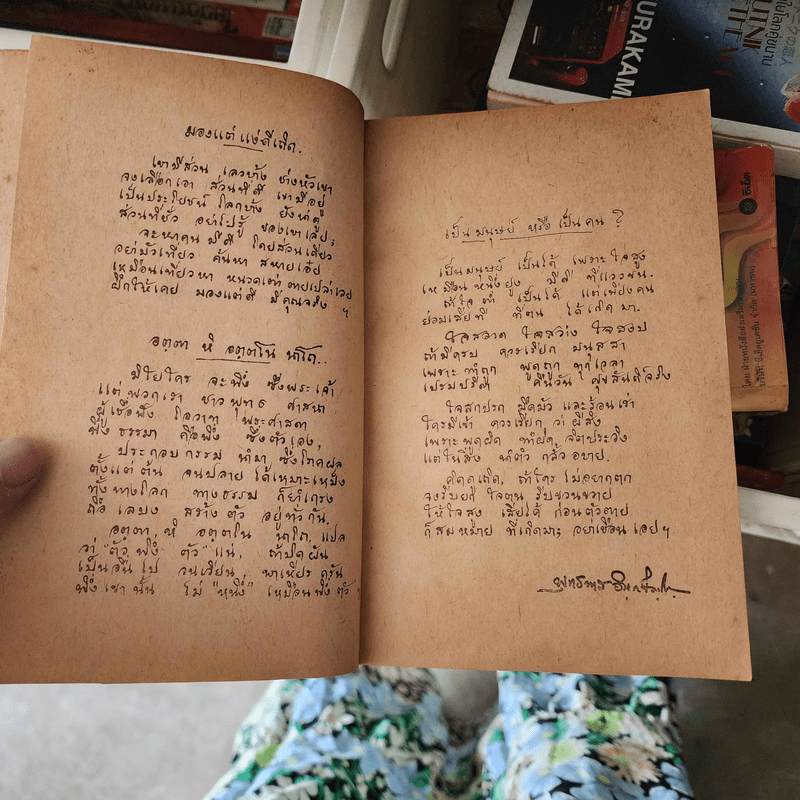 มองแต่ แง่ดีเถิด.
เขามีส่วน เลวบ้าง ช่างหัวเขา
จงเลือกเอา ส่วนที่ดี เขามีอยู่
เป็นประโยชน์ โลกบ้าง ยังน่าดู
ส่วนที่ชั่ว อย่าไปรู้ ของเขาเลย;
จะหาคน มีดี โดยส่วนเดียว
อย่ามัวเที่ยว ค้นหา สหายเอ๋ย
เหมือนเที่ยวหา หนวดเต่า ตายเปล่าเลย
ฝึกให้เคย มองแต่ดี มีคุณจริง ฯ
อตฺตา หิ อตฺตโน นาโถ..
มิใยใคร จะพึ่ง ซึ่งพระเจ้า
แต่พวกเรา ชาวพุทธ ศาสนา
ผู้เชื่อฟัง โอวาท พระศาสดา
พึ่งธรรมา คือพึ่ง ซึ่งตัวเอง,
ประกอบกรรม นำมา ซึ่งโภคผล
ตั้งแต่ต้น จนปลาย ได้เหมาะเหม็ง
ทั้งทางโลก ทางธรรม ก็ยำเกรง
ถือ เลบง สร้างตัว อยู่ทั่วกัน.
อตฺตา หิ อตฺตโน นาโถ, แปล
ว่า "ตัวพึ่ง ตัว" แน่, ถ้าบิดผัน
เป็นอื่นไป วนเวียน พาเหียรครัน
พึ่งเขานั้น ไม่ "หนึ่ง" เหมือนพึ่งตัว
เป็นมนุษย์ หรือ เป็นคน ?
เป็นมนุษย์ เป็นได้ เพราะใจสูง
เหมือนหนึ่งยูง มีดี ที่แววขน.
ถ้าใจต่ำ เป็นได้ แต่เพียงคน
ย่อมเสียที ที่ตน ได้เกิดมา.
ใจสอาด ใจสว่าง ใจสงบ
ถ้ามีครบ ควรเรียก มนุสสา
เพราะทำถูก พูดถูก ทุกเวลา
เปรมปรีดา คืนวัน สุขสันติ์จริง
ใจสกปรก มืดมัว และร้อนเร่า
ใครมีเข้า ควรเรียก ว่าผีสิง
เพราะพูดผิด ทำผิด จิตประวิง
แต่ในสิ่ง นำตัว กลั้วอบาย.
คิดดูเถิด, ถ้าใคร ไม่อยากตก
จงรีบยก ใจตน รีบขวนขวาย
ให้ใจสูง เสียได้ ก่อนตัวตาย
ก็สมหมาย ที่เกิดมา; อย่าเชือนเอยฯ
พุทธทาส อินทปัญโญ.
URAKAMI